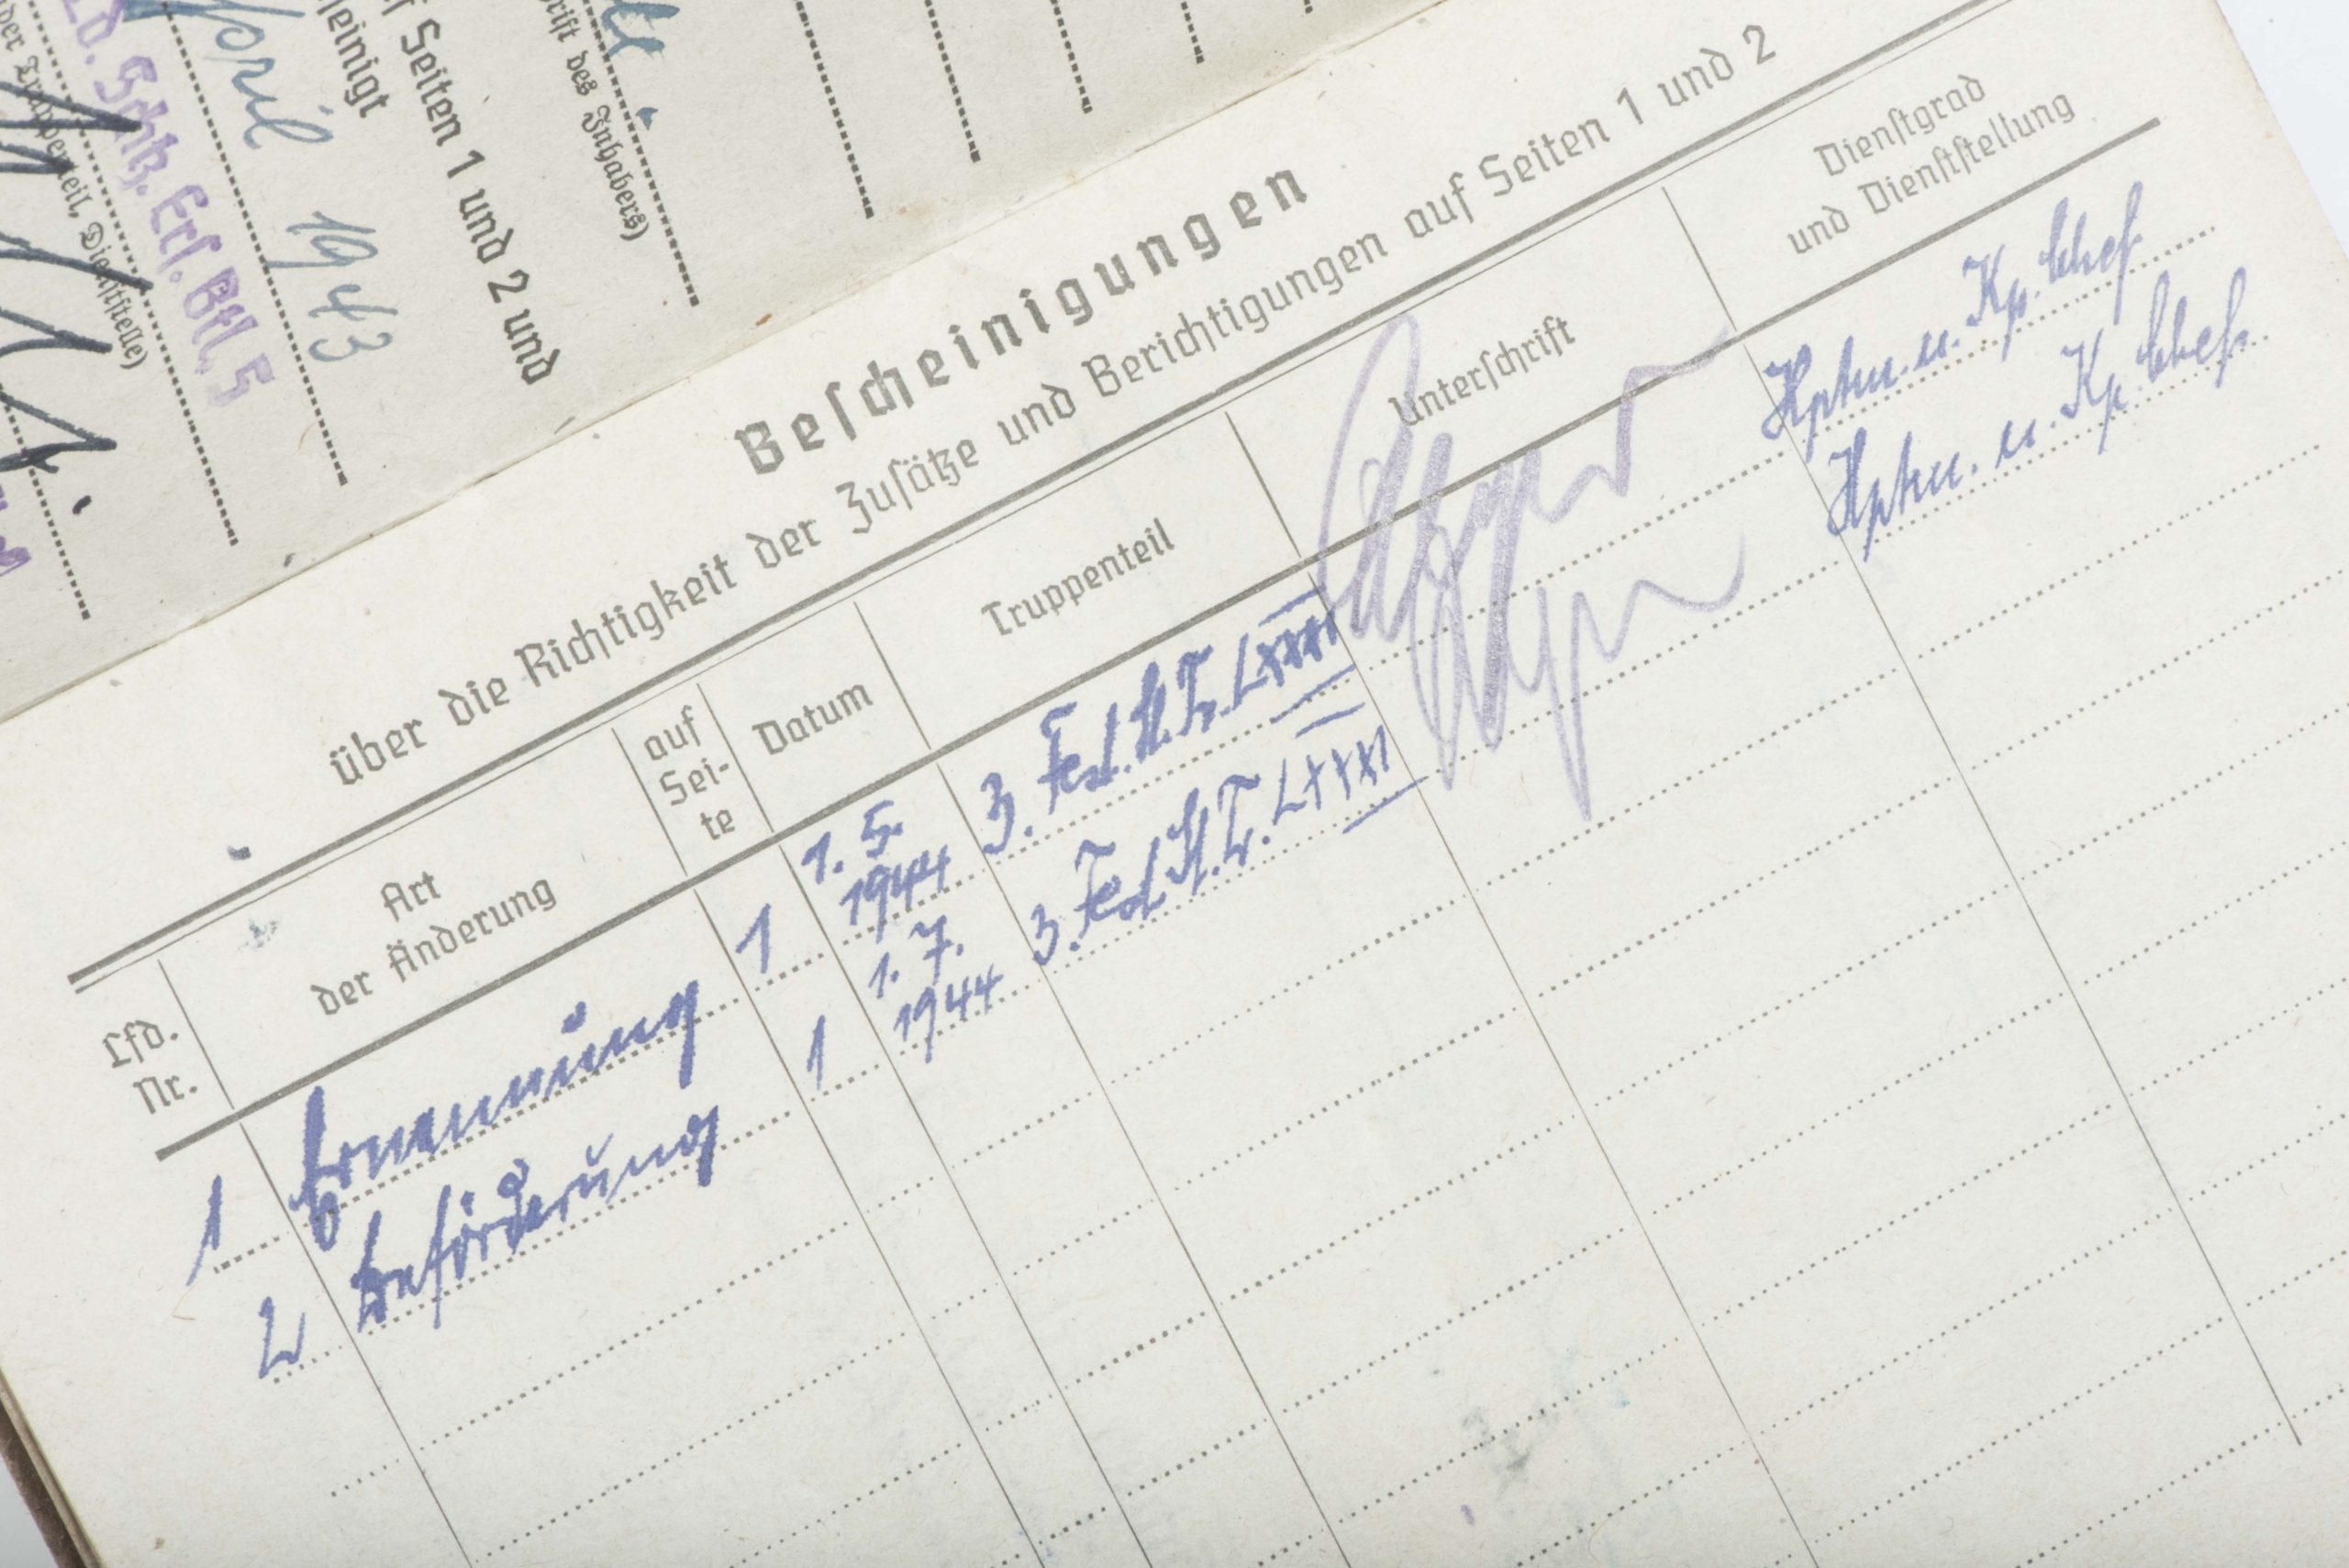 Ld. Schtz. Ers. Btl. 5
der Truppenteil, Dienststelle)
April 1943
f Seiten 1 und 2 und
einigt
rift des Inhabers)
Bescheinigungen
über die Richtigkeit der Zusätze und Berichtigungen auf Seiten 1 und 2
Lfd. Nr.
Art der Änderung
auf Sei-te
Datum
Truppenteil
Unterschrift
Dienstgrad und Dienststellung
1 Ernennung 1 1. 5. 1944 3. Fest. St. Tr. LXXXI Hptm. u. Kp. Chef
2 Beförderung 1 1. 7. 1944 3. Fest. St. Tr. LXXXI Hptm. u. Kp. Chef